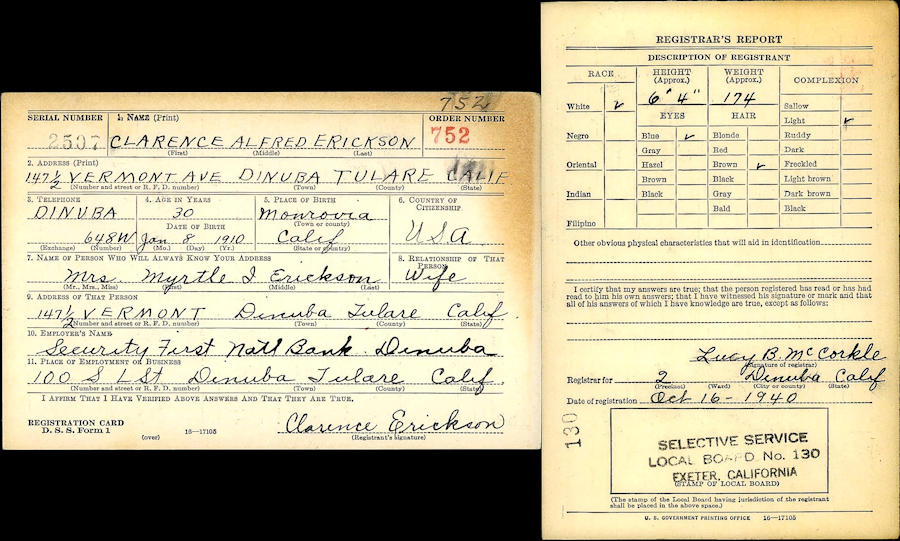 752
SERIAL NUMBER 1. NAME (Print) ORDER NUMBER
2507 CLARENCE ALFRED ERICKSON 752
(First) (Middle) (Last)
2. ADDRESS (Print)
147½ VERMONT AVE DINUBA TULARE CALIF
(Number and street or R. F. D. number) (Town) (County) (State)
3. TELEPHONE 4. AGE IN YEARS 5. PLACE OF BIRTH 6. COUNTRY OF CITIZENSHIP
DINUBA 30 Monrovia
DATE OF BIRTH
648W Jan 8 1910 Calif U.S.A.
(Exchange) (Number) (Mo.) (Day) (Yr.) (State or country)
7. NAME OF PERSON WHO WILL ALWAYS KNOW YOUR ADDRESS 8. RELATIONSHIP OF THAT PERSON
Mrs. Myrtle I Erickson Wife
(Mr., Mrs., Miss) (First) (Middle) (Last)
9. ADDRESS OF THAT PERSON
147½ VERMONT Dinuba Tulare Calif.
(Number and street or R. F. D. number) (Town) (County) (State)
10. EMPLOYER'S NAME
Security First Natl Bank Dinuba
11. PLACE OF EMPLOYMENT OR BUSINESS
100 S L St Dinuba Tulare Calif.
(Number and street or R. F. D. number) (Town) (County) (State)
I AFFIRM THAT I HAVE VERIFIED ABOVE ANSWERS AND THAT THEY ARE TRUE.
REGISTRATION CARD
D. S. S. Form 1 (over) 16—17105
Clarence Erickson
(Registrant's signature)
REGISTRAR'S REPORT
DESCRIPTION OF REGISTRANT
RACE HEIGHT (Approx.) WEIGHT (Approx.) COMPLEXION
White ✓ 6' 4" 174 Sallow
EYES HAIR Light ✓
Negro Blue ✓ Blonde Ruddy
Gray Red Dark
Oriental Hazel Brown ✓ Freckled
Brown Black Light brown
Indian Black Gray Dark brown
Bald Black
Filipino
Other obvious physical characteristics that will aid in identification
I certify that my answers are true; that the person registered has read or has had
read to him his own answers; that I have witnessed his signature or mark and that
all of his answers of which I have knowledge are true, except as follows:
Lucy B. McCorkle
(Signature of registrar)
Registrar for 2 Dinuba Calif
(Precinct) (Ward) (City or county) (State)
Date of registration Oct 16 - 1940
130
SELECTIVE SERVICE
LOCAL BOARD No. 130
EXETER, CALIFORNIA
(STAMP OF LOCAL BOARD)
(The stamp of the Local Board having jurisdiction of the registrant
shall be placed in the above space.)
U. S. GOVERNMENT PRINTING OFFICE 16—17105